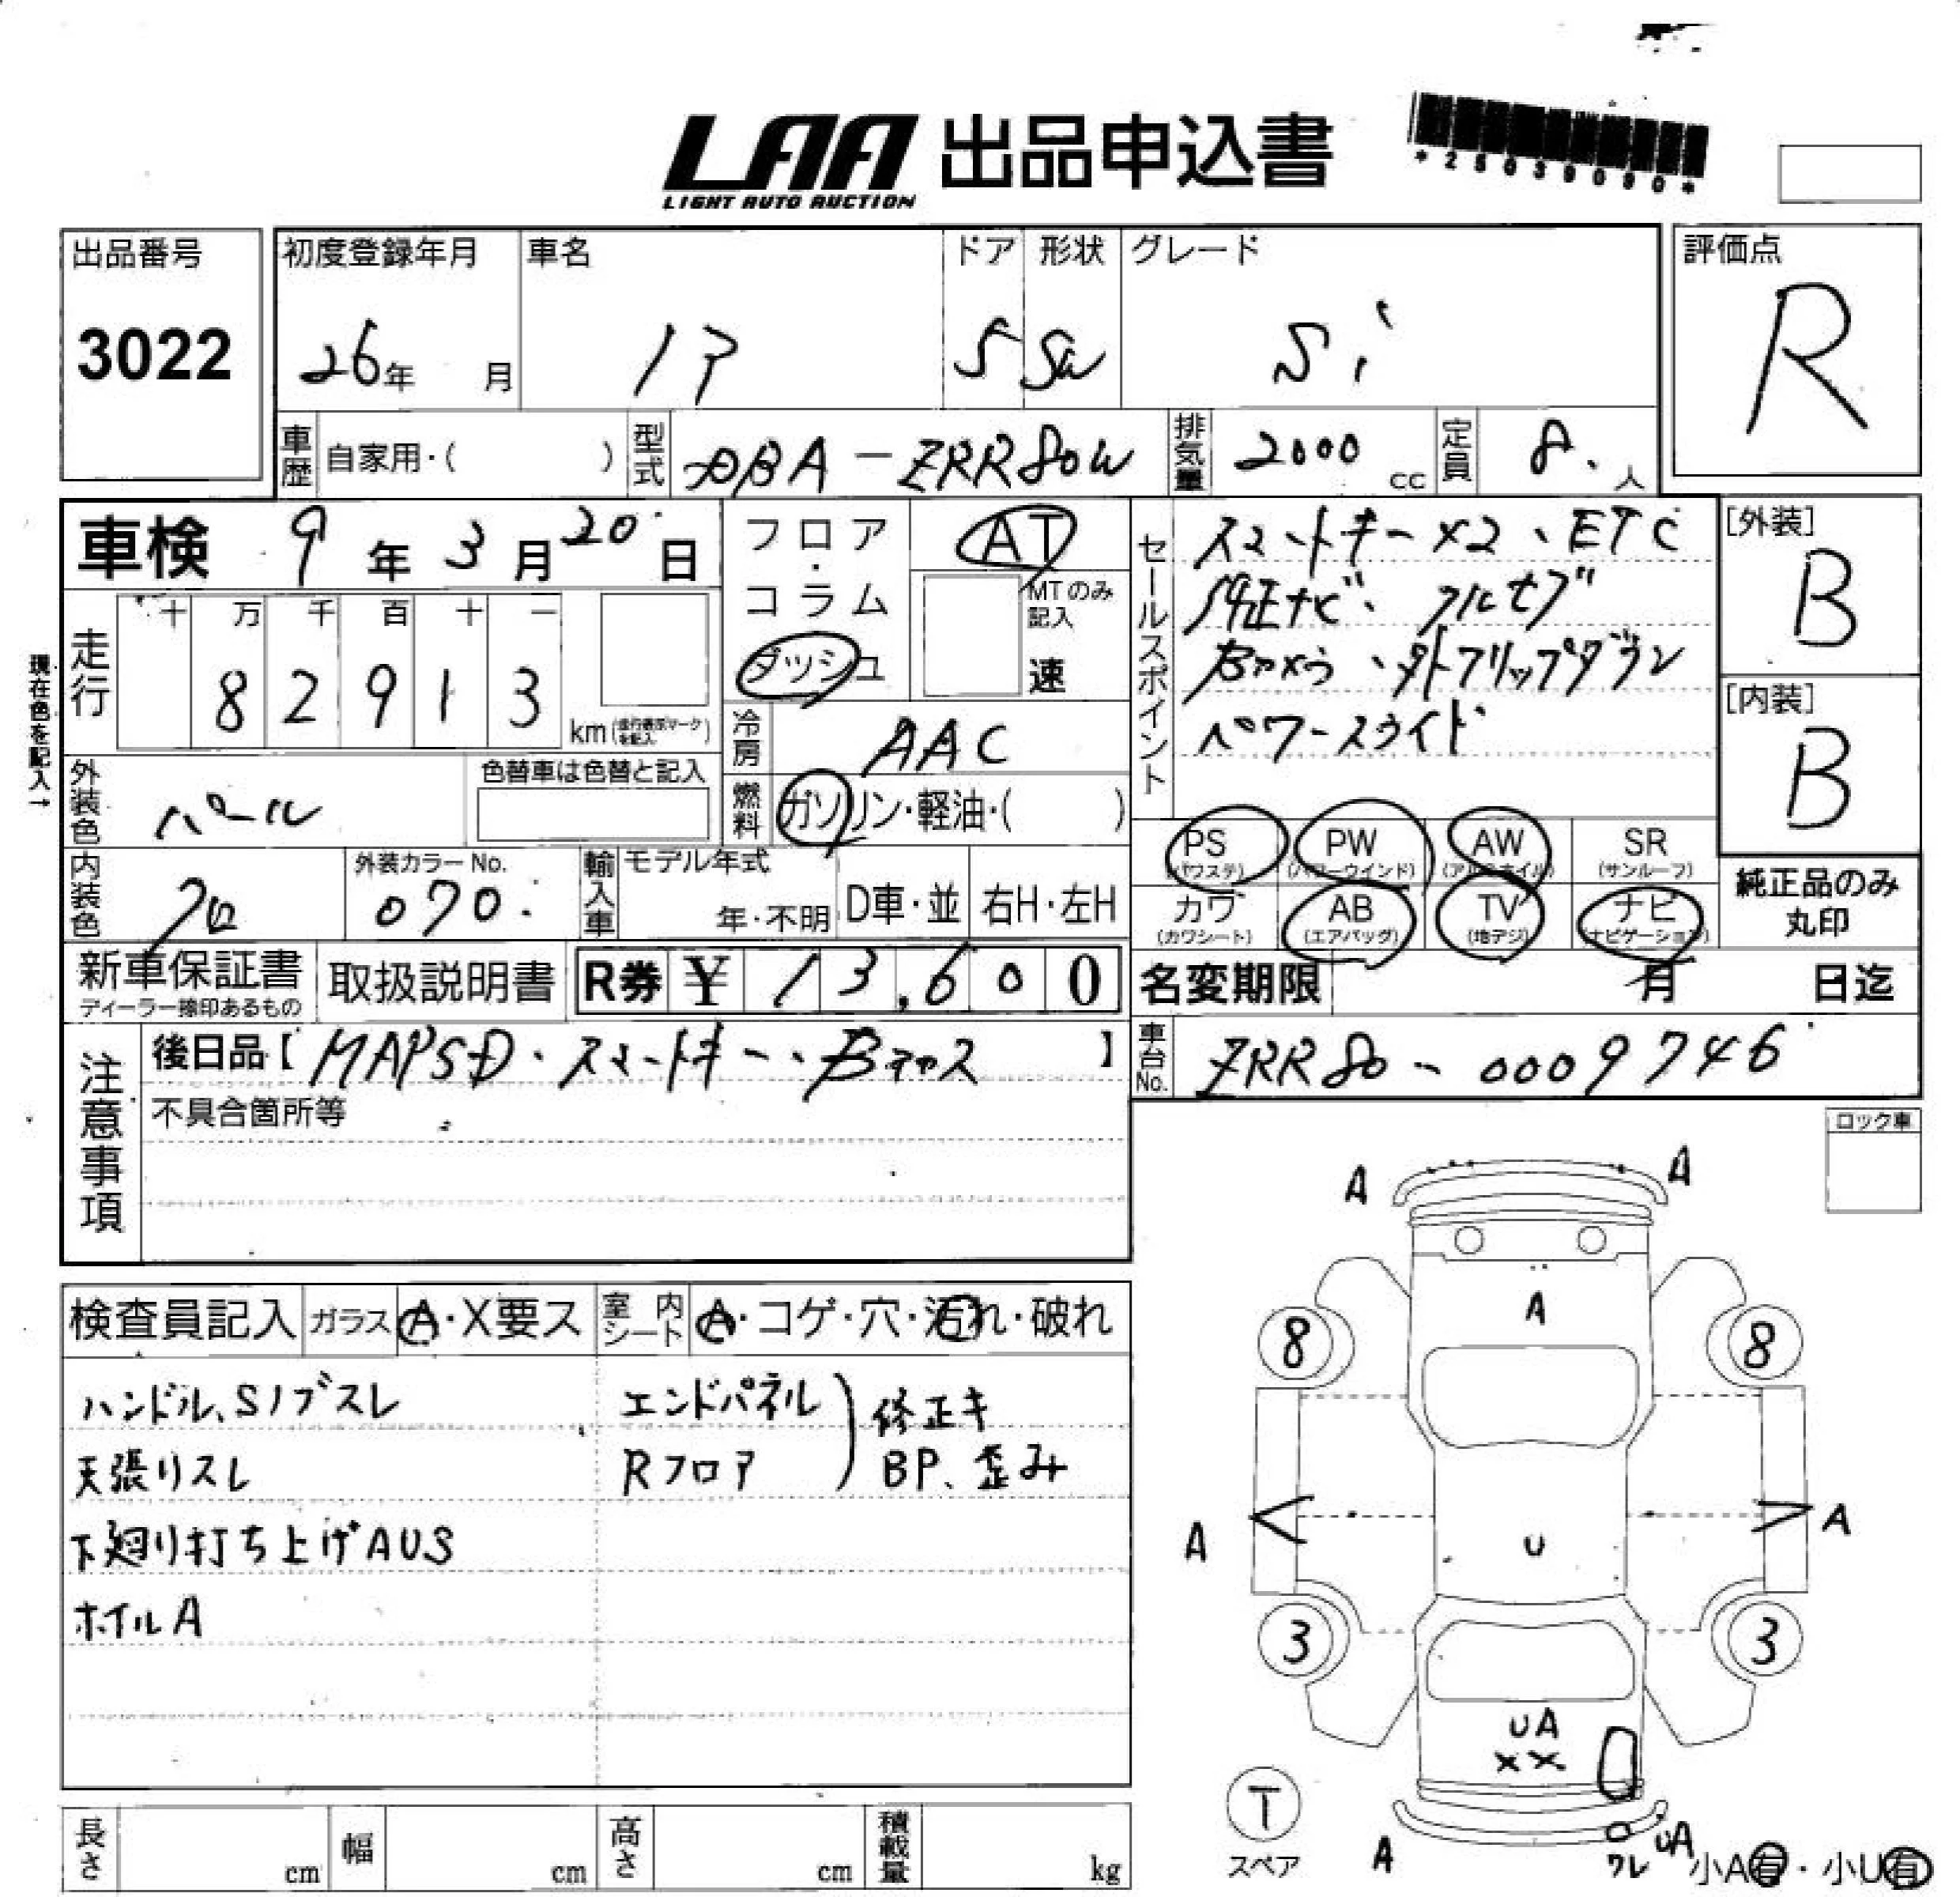 LAA 出品申込書
LIGHT AUTO AUCTION
*25039090*
出品番号
3022
初度登録年月
26年 月
車名
ドア
5
形状
グレード
Si
評価点
R
車歴
自家用・( )
型式
DBA-ZRR80W
排気量
2000 cc
定員
8. 人
車検 9年 3月 20日
現在色を記入→
走行
十 万 千 百 十 一
8 2 9 1 3
km
フロア・コラム
ダッシュ
AT
MTのみ記入
速
冷房
AAC
燃料
ガソリン・軽油・( )
外装色
パール
色替車は色替と記入
内装色
クロ
外装カラーNo.
070
輸入車
モデル年式
年・不明
D車・並
右H・左H
セールスポイント
スマートキー×2、ETC
純正ナビ、フルセグ
Bカメラ、外フリップダウン
パワースライド
[外装]
B
[内装]
B
PS
(パワステ)
PW
(パワーウインド)
AW
(アルミホイル)
SR
(サンルーフ)
カワ
(カワシート)
AB
(エアバッグ)
TV
(地デジ)
ナビ
(ナビゲーション)
純正品のみ丸印
新車保証書
ディーラー捺印あるもの
取扱説明書
R券 ¥ 13,600
名変期限 月 日迄
注意事項
後日品【MAPSD・スマートキー、Bキャス】
不具合箇所等
車台No.
ZRR80-0009746
ロック車
検査員記入
ガラス A・X要ス
室内シート A・コゲ・穴・汚れ・破れ
ハンドル、Sノブスレ
天張りスレ
下廻り打ち上げAUS
ホイルA
エンドパネル
Rフロア
修正キ
BP、歪み
A A
A
8 8
A A
U
3 3
UA
××
T
スペア
A
UA
ワレ
小A有・小U有
長さ cm
幅 cm
高さ cm
積載量 kg